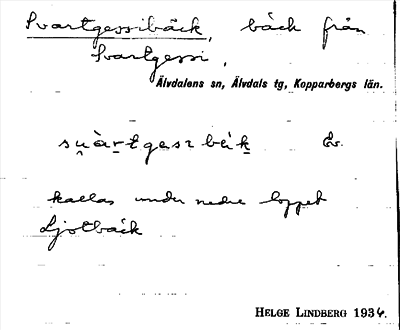 Svartgessibäck, bäck från
Svartgessi,
Älvdalens sn, Älvdals tg, Kopparbergs län.
kallas under nedre loppet
Ljotbäck
HELGE LINDBERG 1934.